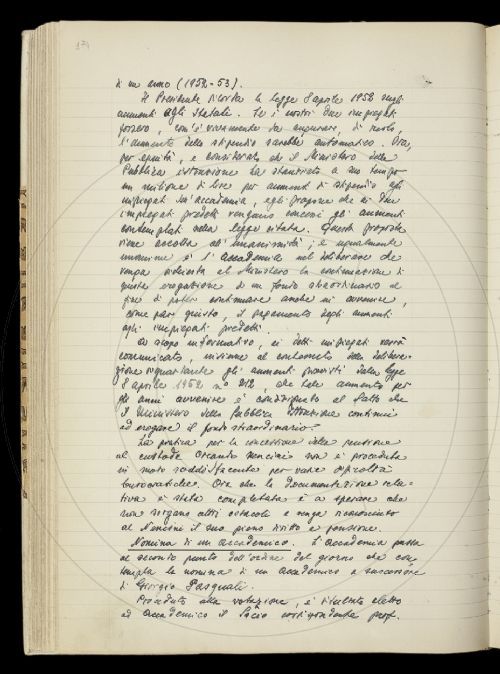 174
di un anno (1952-53).
Il Presidente ricorda la legge 8 aprile 1952 sugli
aumenti agli statali. Se i nostri due impiegati
fossero, com'è vivamente da augurare, di ruolo,
l'aumento dello stipendio sarebbe automatico. Ora,
per equità, e considerato che il Ministero della
Pubblica istruzione ha stanziato a suo tempo
un milione di lire per aumenti di stipendio agli
impiegati dell'accademia, egli propone che ai due
impiegati predetti vengano concessi gli aumenti
contemplati nella legge citata. Questa proposta
viene accolta all'unanimità; e ugualmente
unanime è l'Accademia nel deliberare che
venga richiesta al Ministero la continuazione di
questa erogazione di un fondo straordinario al
fine di poter continuare anche in avvenire,
come pare giusto, il pagamento degli aumenti
agli impiegati predetti.
A scopo informativo, ai detti impiegati verrà
comunicato, insieme al contenuto della delibera-
zione riguardante gli aumenti previsti dalla legge
8 aprile 1952 n° 212, che tale aumento per
gli anni avvenire è condizionato al fatto che
il Ministero della Pubblica Istruzione continui
ad erogare il fondo straordinario.
La pratica per la concessione della pensione
al custode Orlando Mencini non è proceduta
in modo soddisfacente per varie difficoltà
burocratiche. Ora che la documentazione rela-
tiva è stata completata è a sperare che
non sorgano altri ostacoli e venga riconosciuto
al Mencini il suo pieno diritto a pensione.
Nomina di un Accademico. L'Accademia passa
al secondo punto dell'ordine del giorno che con-
templa la nomina di un accademico a successore
di Giorgio Pasquali.
Proceduto alla votazione, è risultato eletto
ad Accademico il Socio corrispondente prof.